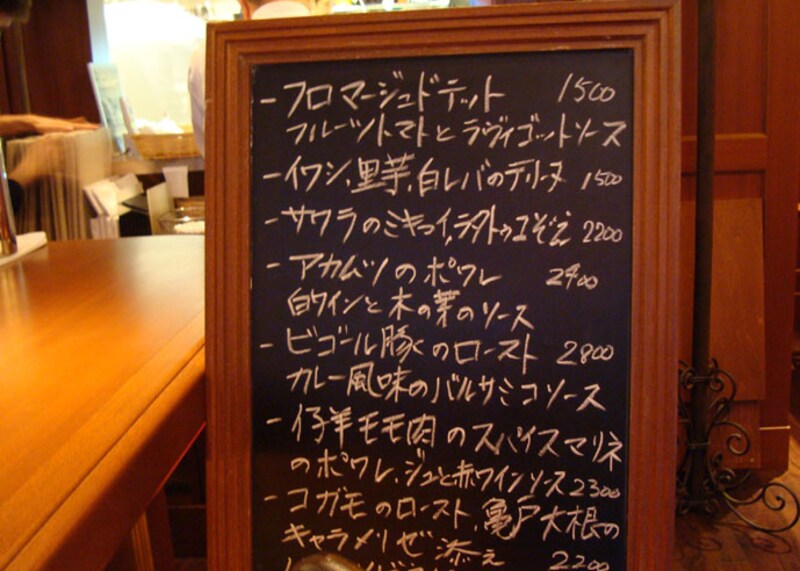 - フロマージュドテット 1500
フルーツトマトとラヴィゴットソース
- イワシ、里芋、白レバのテリーヌ 1500
- サワラのミキュイ、ラタトゥユぞえ 2200
- アカムツのポワレ 2400
白ワインと木の葉のソース
- ビゴール豚のロースト 2800
カレー風味のバルサミコソース
- 仔羊モモ肉のスパイスマリネ
のポワレ、ジュと赤ワインソース 2300
- コガモのロースト、亀戸大根の
キャラメリゼ添え 2200